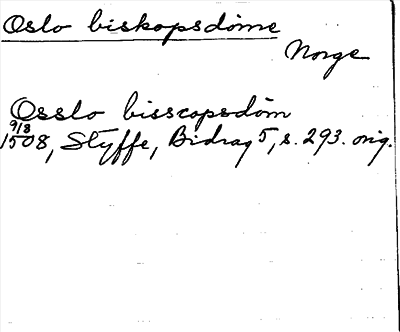 Oslo biskopsdöme
Norge
Osslo bisscopsdöm
9/8
1508, Styffe, Bidrag 5, s. 293. orig.